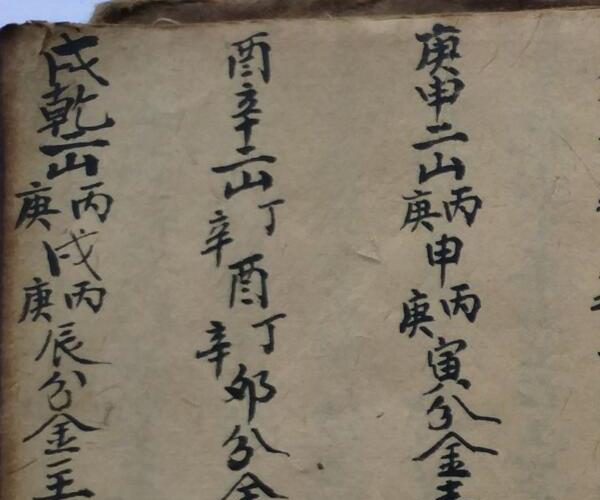 庚申二山丙庚申丙庚寅分金
酉辛二山丁辛酉丁辛卯分金
戌乾二山丙庚戌丙庚辰分金